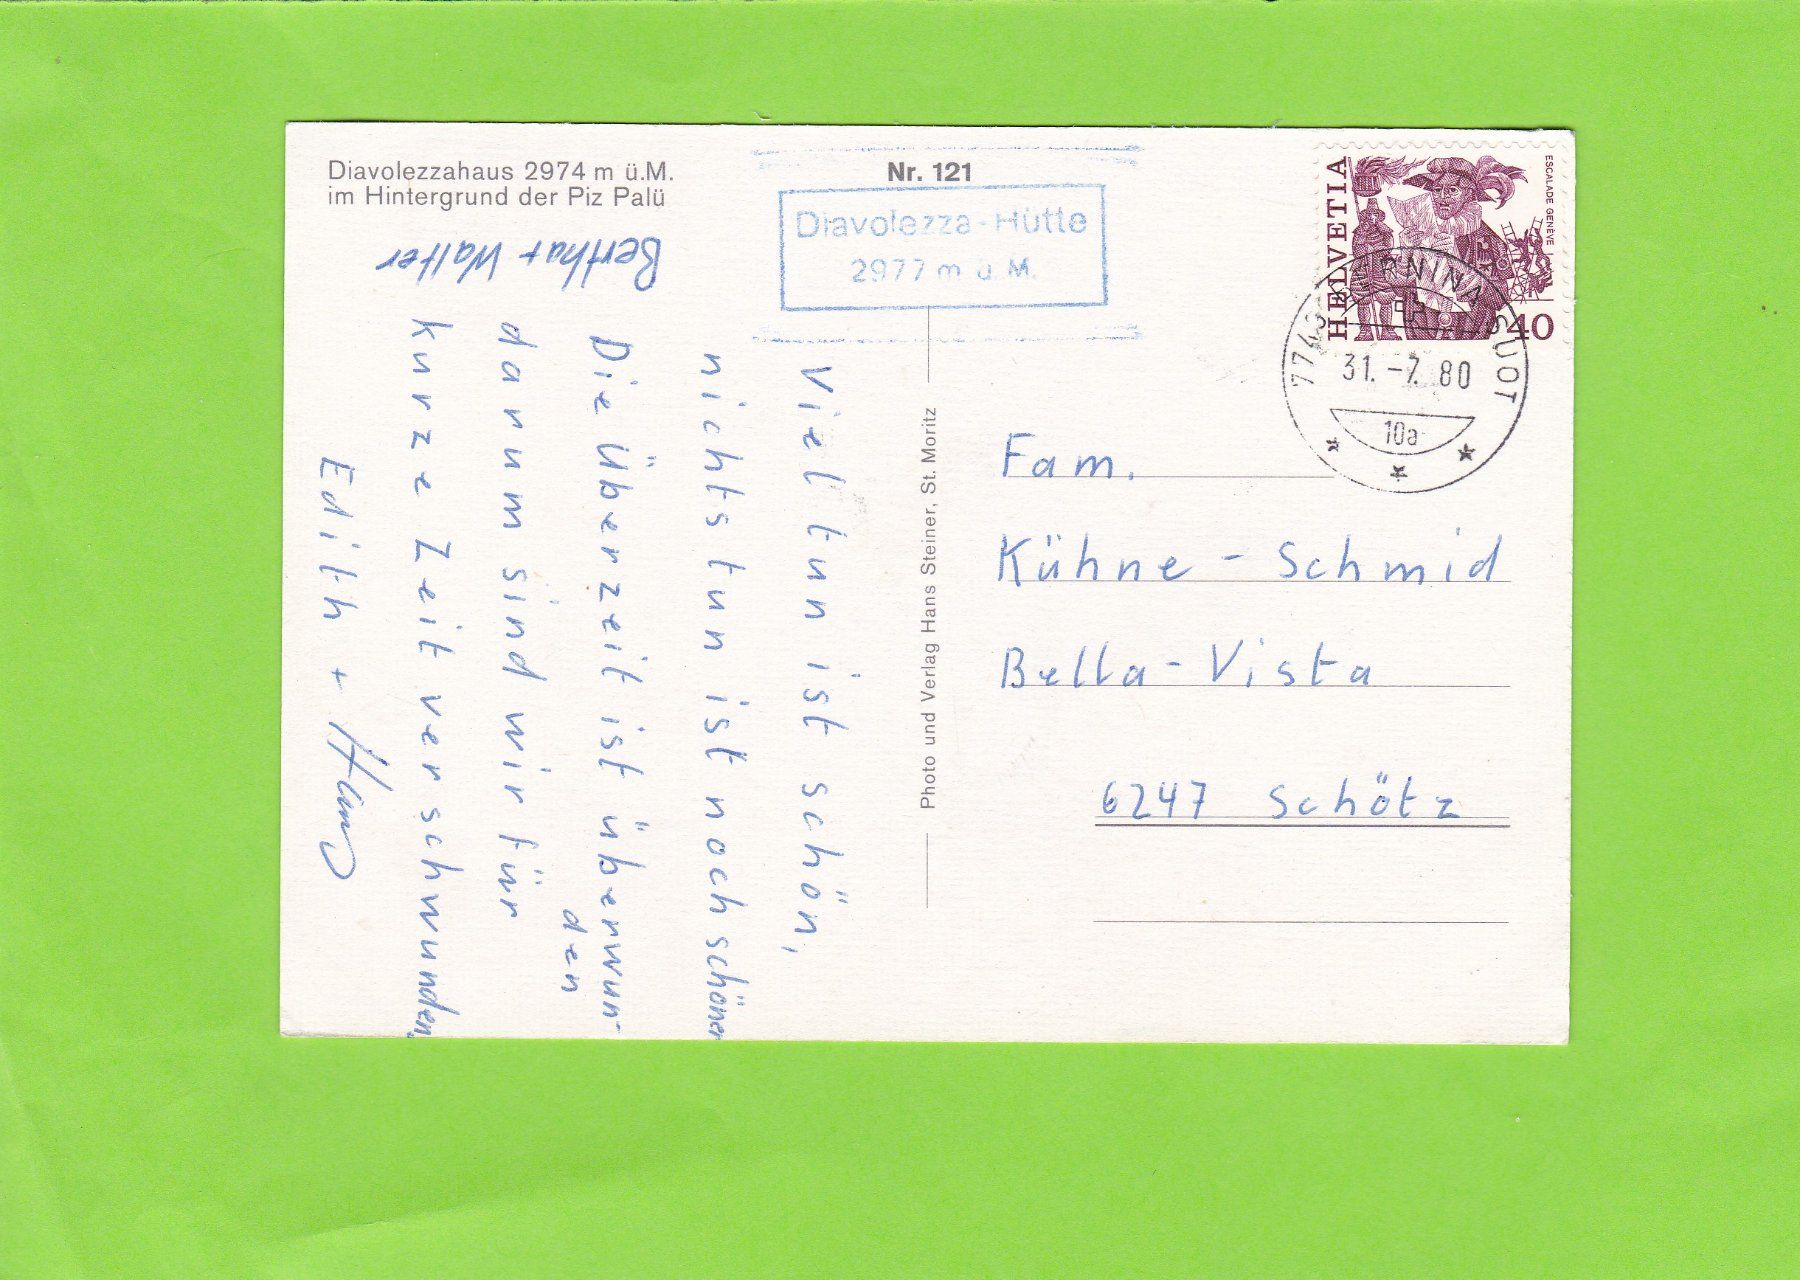 Diavolezzahaus 2974 m ü.M.
im Hintergrund der Piz Palü
Nr. 121
Diavolezza-Hütte
2977 m ü. M.
HELVETIA
ESCALADE GENÈVE
40
7743 BERNINA SUOT
31.-7.80
10a
Viel tun ist schön,
nichts tun ist noch schöner
Die Überzeit ist überwun-
den
darum sind wir für
kurze Zeit verschwunden.
Edith + Hans
Bertha + Walter
Photo und Verlag Hans Steiner, St. Moritz
Fam.
Kühne - Schmid
Bella - Vista
6247 Schötz